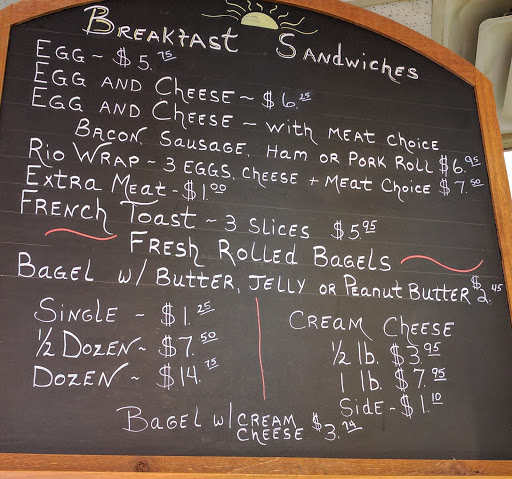 Breakfast Sandwiches
Egg ~ $5.75
Egg and Cheese ~ $6.25
Egg and Cheese ~ with meat choice
Bacon, Sausage, Ham or Pork Roll $6.95
Rio Wrap ~ 3 eggs, cheese + Meat Choice $7.50
Extra Meat - $1.00
French Toast ~ 3 slices $5.95
Fresh Rolled Bagels
Bagel w/ Butter, Jelly or Peanut Butter $2.45
Single ~ $1.25
1/2 Dozen ~ $7.50
Dozen ~ $14.75
Cream Cheese
1/2 lb. $3.95
1 lb. $7.95
Side - $1.10
Bagel w/ Cream Cheese $3.